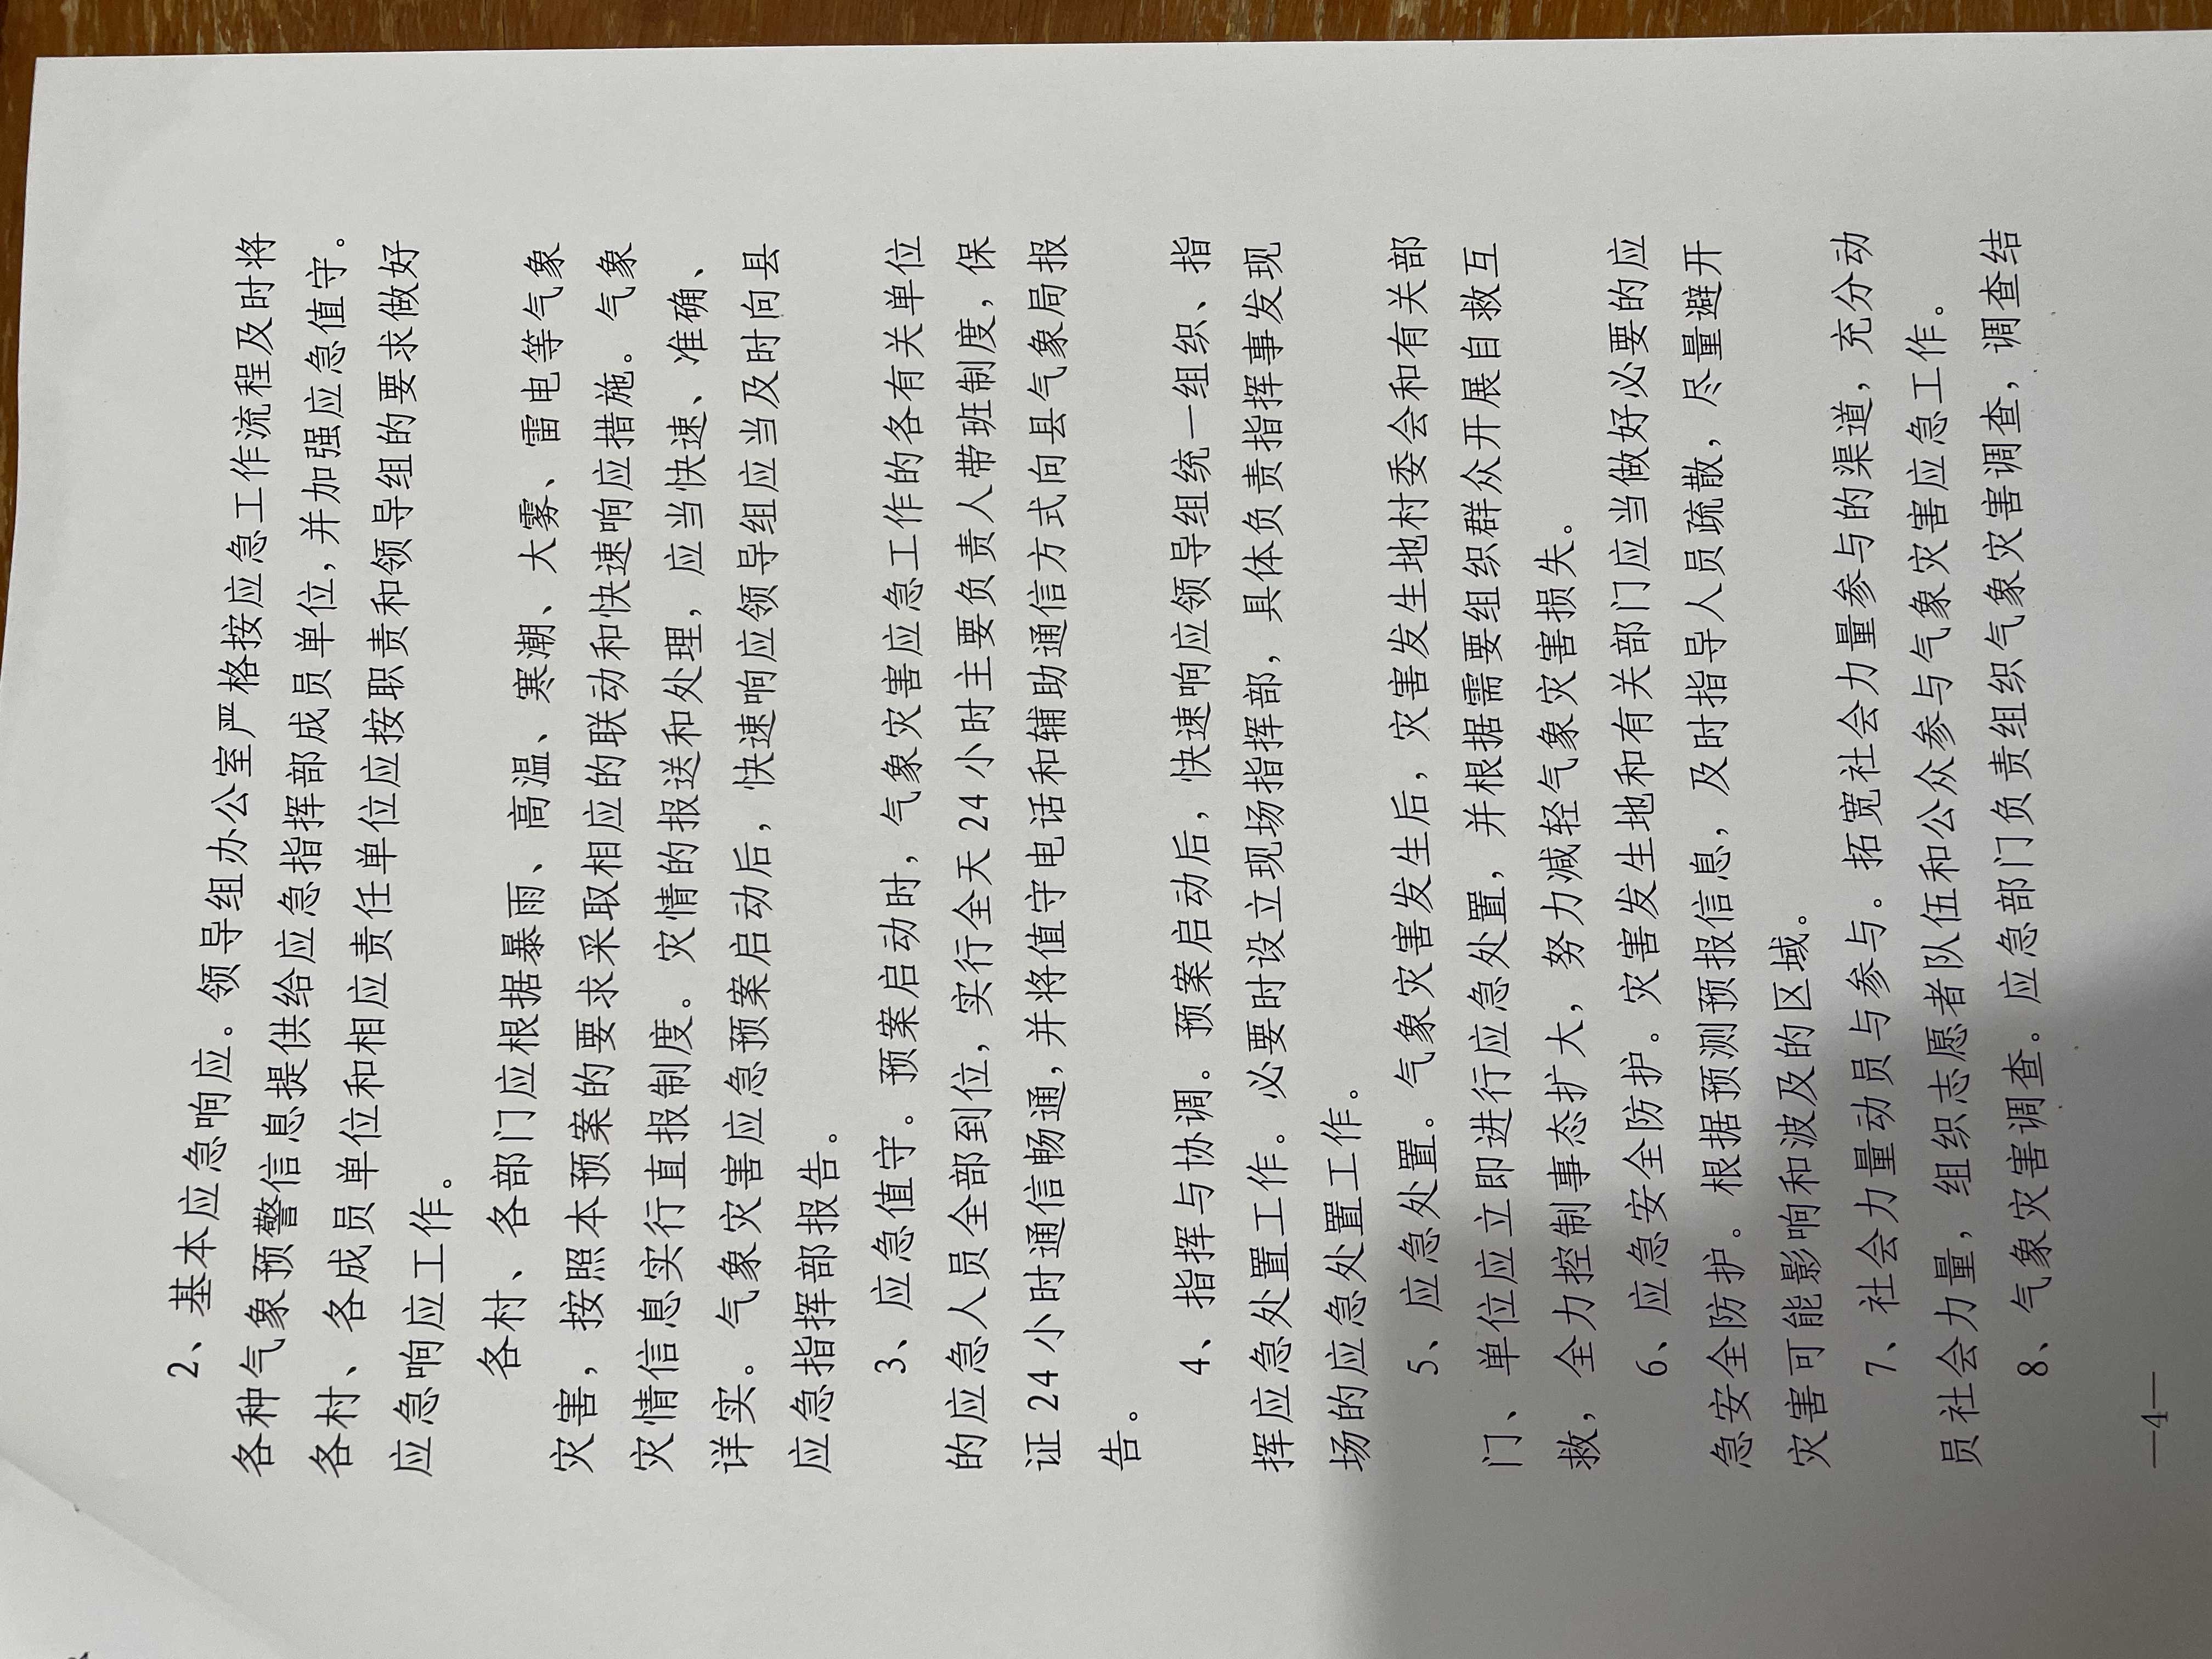 2、基本应急响应。领导组办公室严格按应急工作流程及时将
各种气象预警信息提供给应急指挥部成员单位，并加强应急值守。
各村、各成员单位和相应责任单位应按职责和领导组的要求做好
应急响应工作。
各村、各部门应根据暴雨、高温、寒潮、大雾、雷电等气象
灾害，按照本预案的要求采取相应的联动和快速响应措施。气象
灾情信息实行直报制度。灾情的报送和处理，应当快速、准确、
详实。气象灾害应急预案启动后，快速响应领导组应当及时向县
应急指挥部报告。
3、应急值守。预案启动时，气象灾害应急工作的各有关单位
的应急人员全部到位，实行全天24小时主要负责人带班制度，保
证24小时通信畅通，并将值守电话和辅助通信方式向县气象局报
告。
4、指挥与协调。预案启动后，快速响应领导组统一组织、指
挥应急处置工作。必要时设立现场指挥部，具体负责指挥事发现
场的应急处置工作。
5、应急处置。气象灾害发生后，灾害发生地村委会和有关部
门、单位应立即进行应急处置，并根据需要组织群众开展自救互
救，全力控制事态扩大，努力减轻气象灾害损失。
6、应急安全防护。灾害发生地和有关部门应当做好必要的应
急安全防护。根据预测预报信息，及时指导人员疏散，尽量避开
灾害可能影响和波及的区域。
7、社会力量动员与参与。拓宽社会力量参与的渠道，充分动
员社会力量，组织志愿者队伍和公众参与气象灾害应急工作。
8、气象灾害调查。应急部门负责组织气象灾害调查，调查结
—4—